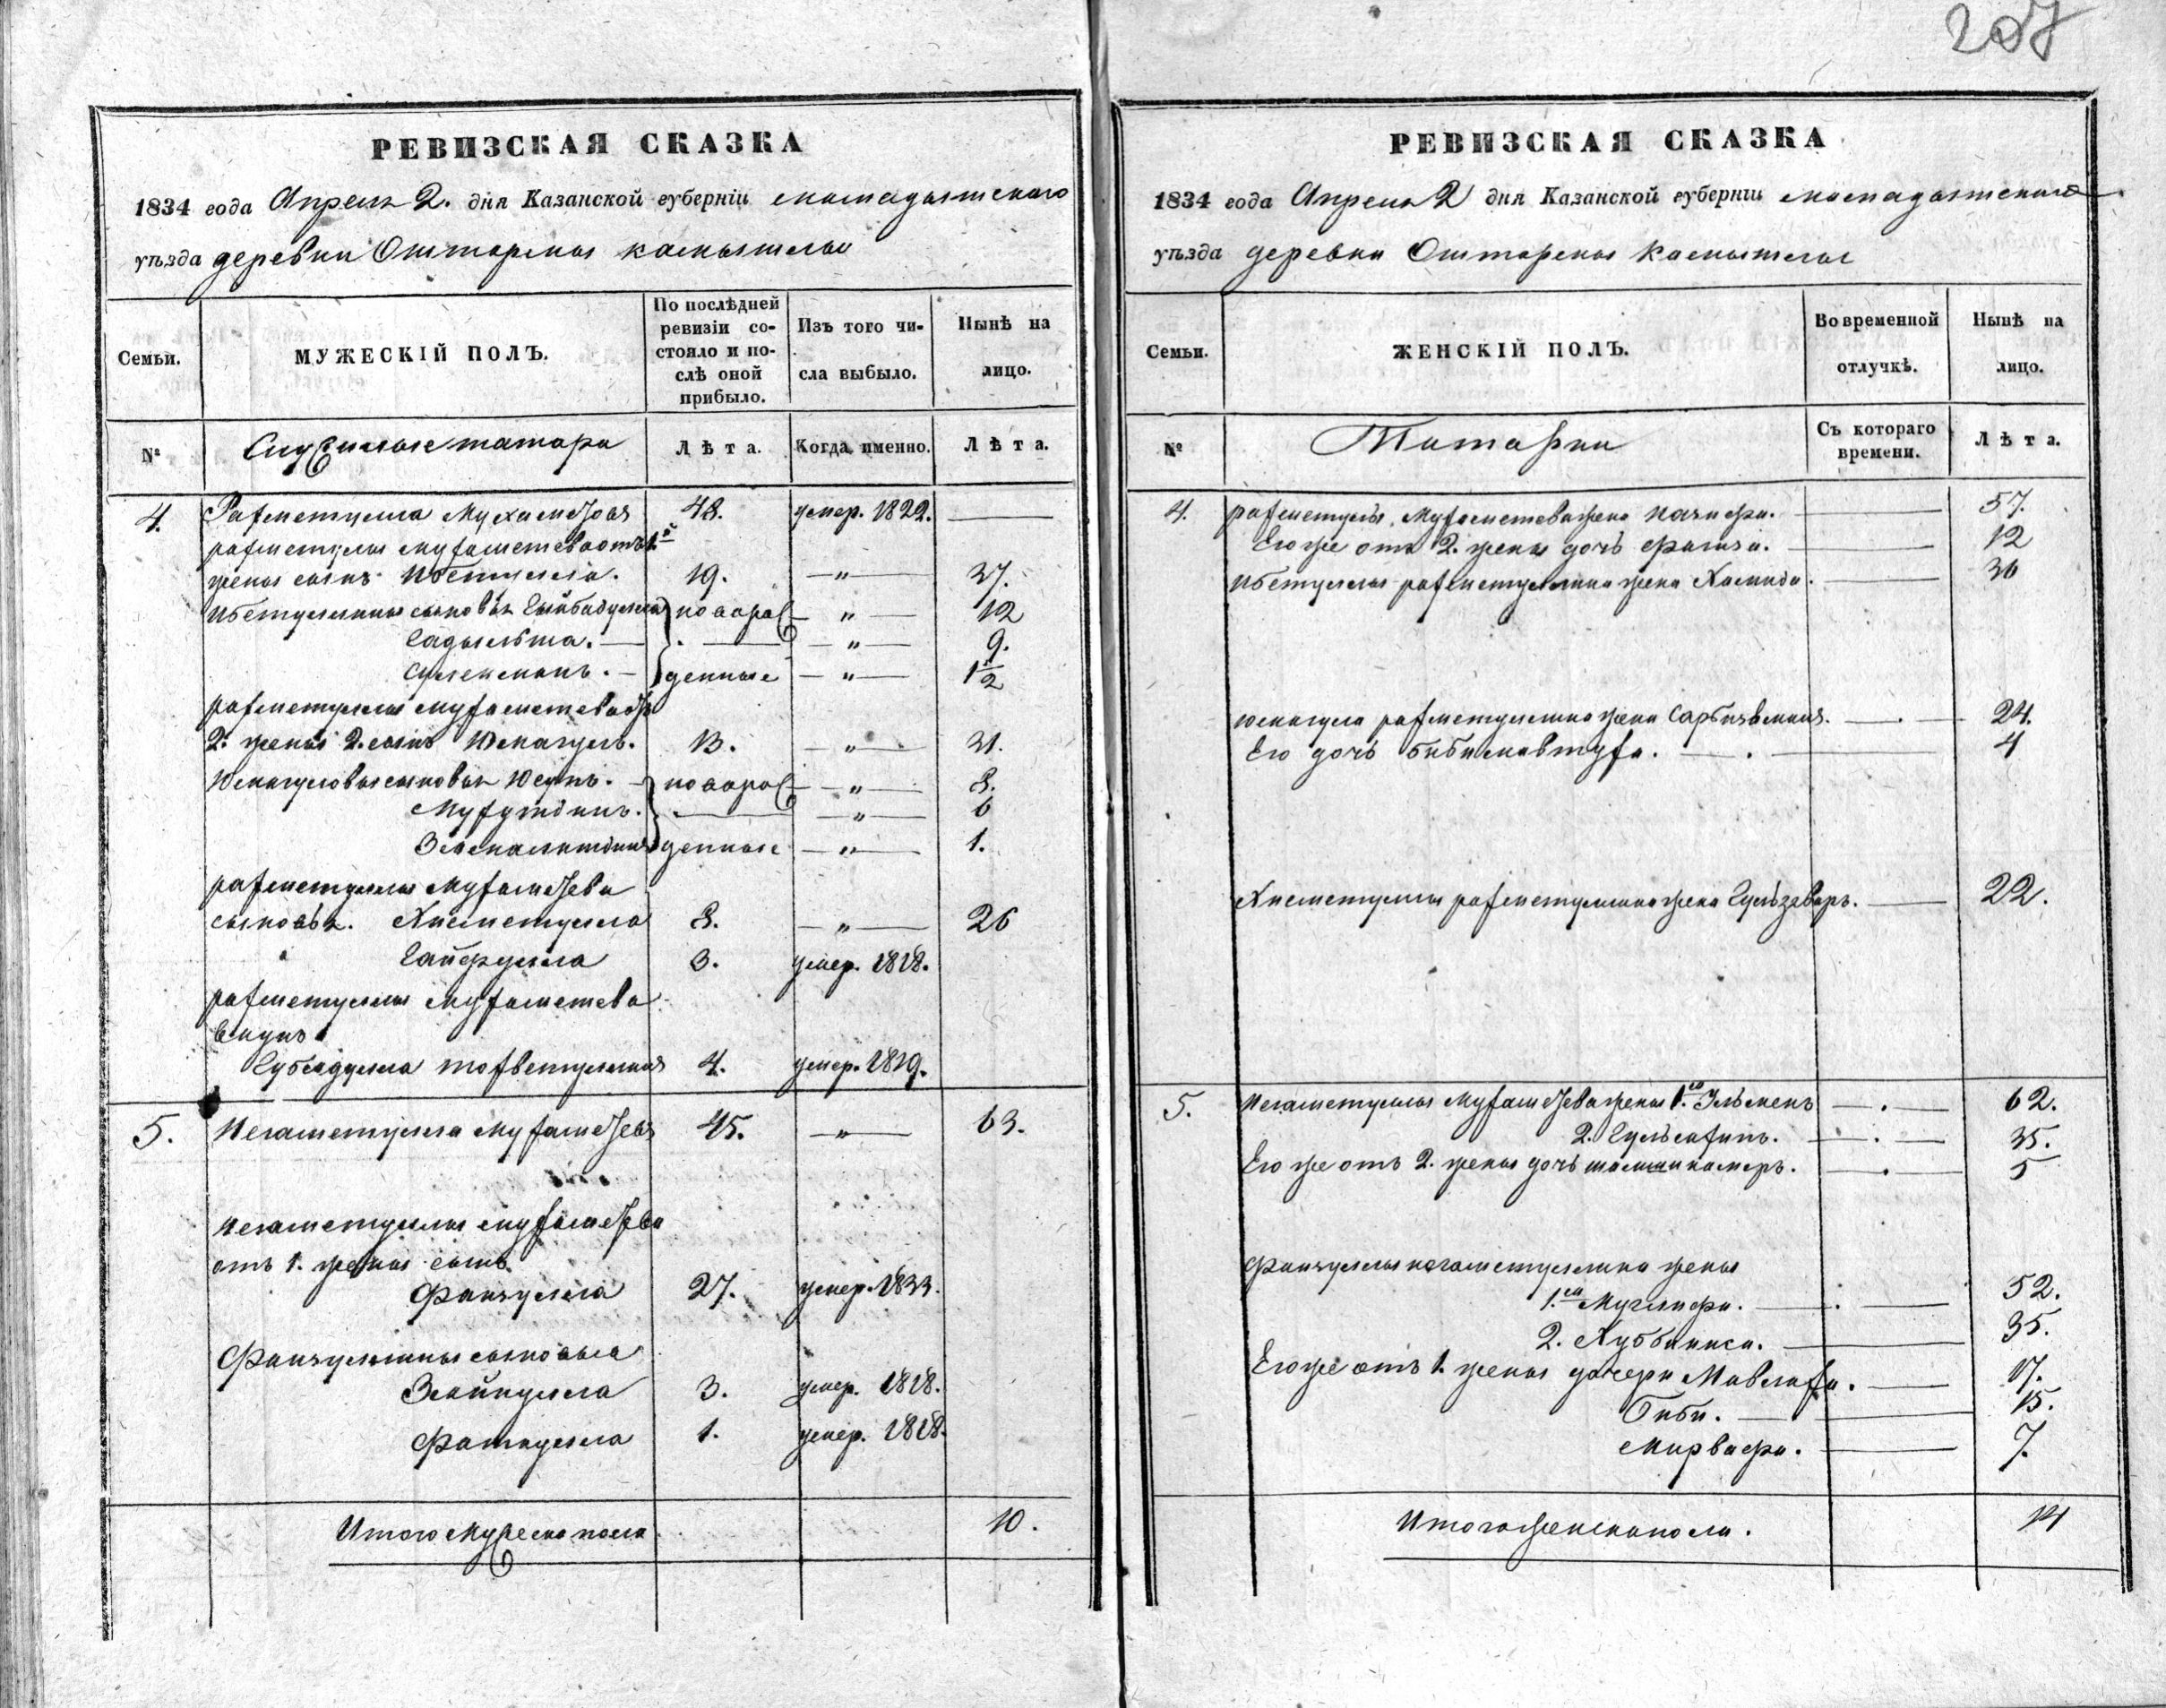 207
РЕВИЗСКАЯ СКАЗКА
1834 года Апреля 2. дня Казанской губерніи мамадышскаго
уѣзда деревни Ошторма
Семьи.
МУЖЕСКІЙ ПОЛЪ.
По послѣдней ревизіи состояло и послѣ оной прибыло.
Изъ того числа выбыло.
Нынѣ на лицо.
№
Служилые татара
Лѣта.
Когда именно.
Лѣта.
4. Рахметулла Мухаметовъ 48. умер. 1822. —
рахметуллы мухаметева отъ 1й
жены сынъ Ибетулла. 19. — " — 37.
ибетуллины сыновья новорож — " — 12
— " — 9.
Сулейманъ. — денные — " — 1 1/2
рахметуллы мухаметева отъ
2й жены 2. сынъ Юмагулъ. 13. — " — 31.
Юмагуловы сыновья Юсупъ. — новорож — " — 8.
— " — 6
денные — " — 1.
рахметуллы мухаметева
сыновья. Хисметулла 8. — " — 26
Гайфулла 3. умер. 1818.
рахметуллы мухаметева
внукъ
Губадулла 4. умер. 1819.
5. Негаметулла мухаметевъ 45. — " — 63.
негаметуллы мухаметева
отъ 1. жены сынъ
Фаизулла 27. умер. 1833.
Фаизуллины сыновья
Зайнулла 3. умер. 1818.
Фаткулла 1. умер. 1818.
Итого мужеска пола 10.
РЕВИЗСКАЯ СКАЗКА
1834 года Апреля 2 дня Казанской губерніи мамадышскаго
уѣзда деревни Ошторма
Семьи.
ЖЕНСКІЙ ПОЛЪ.
Во временной отлучкѣ.
Нынѣ на лицо.
№
Татарки
Съ котораго времени.
Лѣта.
4. рахметуллы мухаметева жена — 57.
Его же отъ 2. жены дочь — 12
ибетуллы рахметуллина жена Хамида. — 36
юмагула рахметуллина жена — 24.
Его дочь — 4
Хисметуллы рахметуллина жена Гульзаваръ. — 22.
5. негаметуллы мухаметева жены 1.я — 62.
2. — 35.
Его же отъ 2. жены дочь — 5
Фаизуллы негаметуллина жены
1.ая — 52.
2. Хуббниса. — 35.
Его же отъ 1. жены дочери — 17.
Биби. — 15.
— 7.
Итого женска пола. 14